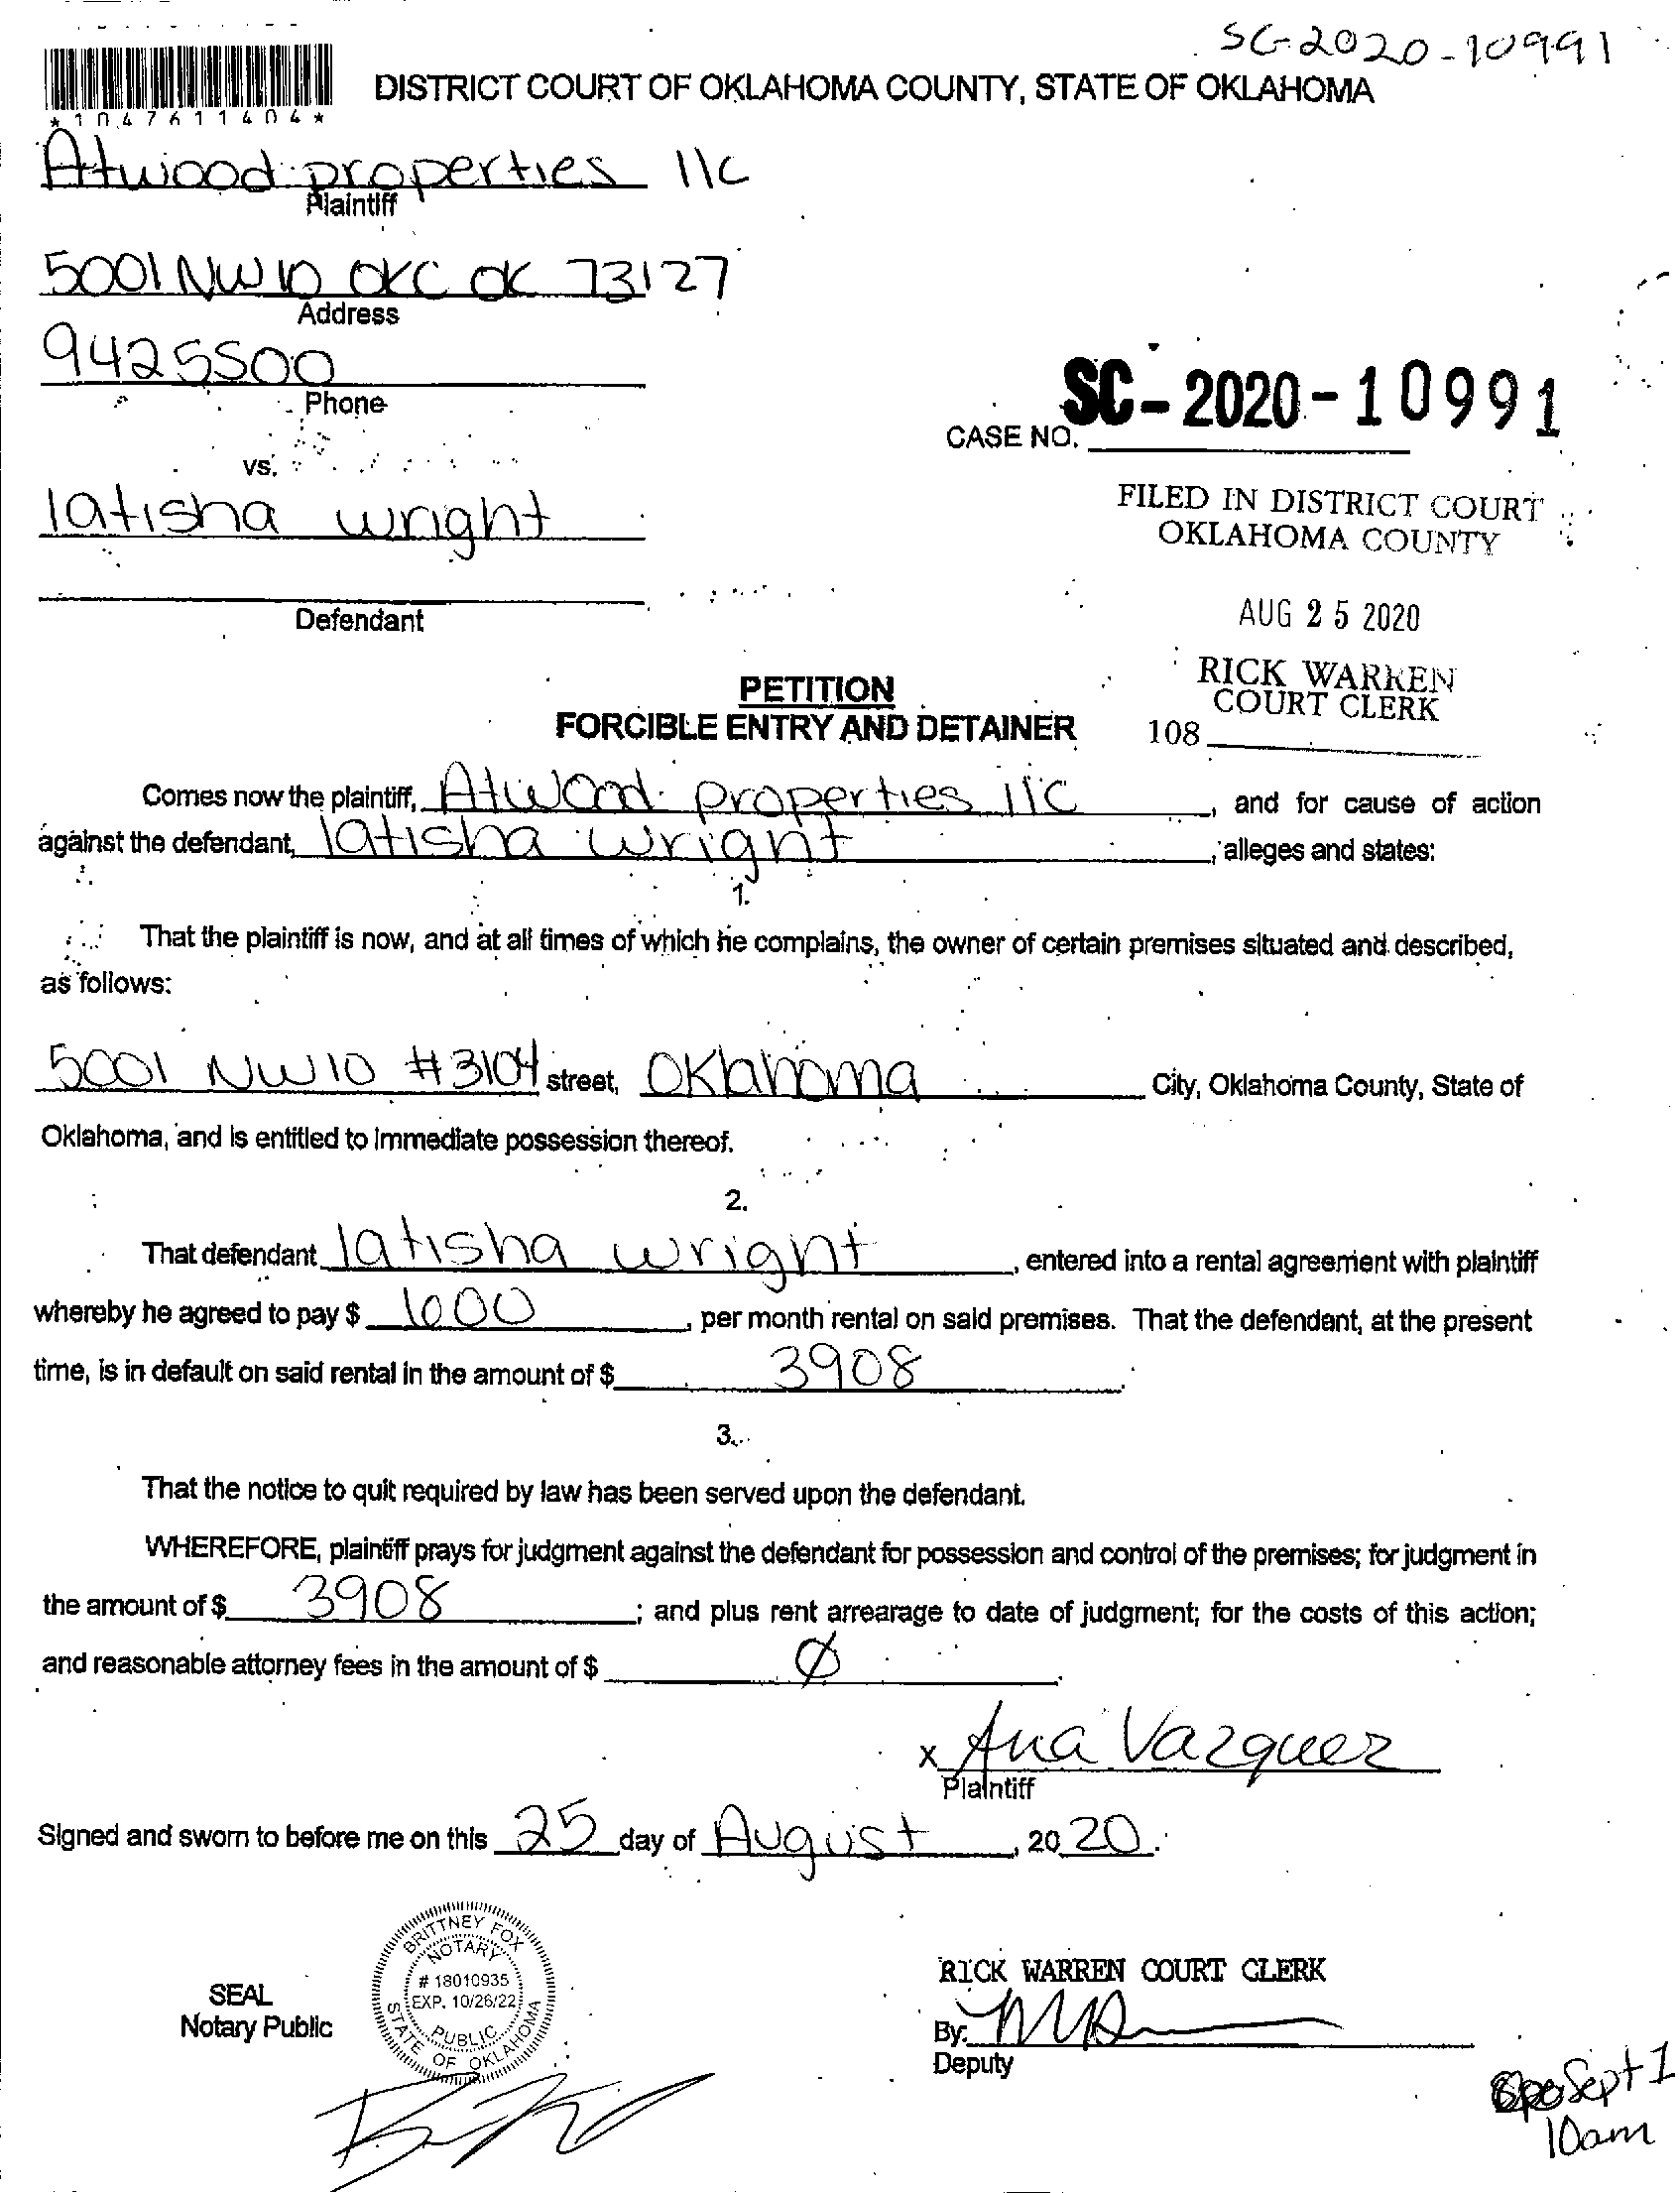 SC-2020-10991
DISTRICT COURT OF OKLAHOMA COUNTY, STATE OF OKLAHOMA
*1047611404*
Atwood properties llc
Plaintiff
5001 NW 10 OKC OK 73127
Address
9425500
Phone
SC-2020-10991
CASE NO.
vs.
latisha wright
FILED IN DISTRICT COURT
OKLAHOMA COUNTY
Defendant
AUG 25 2020
RICK WARREN
COURT CLERK
108
PETITION
FORCIBLE ENTRY AND DETAINER
Comes now the plaintiff, Atwood properties llc, and for cause of action
against the defendant, latisha wright, alleges and states:
1.
That the plaintiff is now, and at all times of which he complains, the owner of certain premises situated and described,
as follows:
5001 NW 10 #3104 street, Oklahoma City, Oklahoma County, State of
Oklahoma, and is entitled to immediate possession thereof.
2.
That defendant latisha wright, entered into a rental agreement with plaintiff
whereby he agreed to pay $ per month rental on said premises. That the defendant, at the present
time, is in default on said rental in the amount of $ 3908.
3.
That the notice to quit required by law has been served upon the defendant.
WHEREFORE, plaintiff prays for judgment against the defendant for possession and control of the premises; for judgment in
the amount of $ 3908; and plus rent arrearage to date of judgment; for the costs of this action;
and reasonable attorney fees in the amount of $ Ø.
x Ana Vazquez
Plaintiff
Signed and sworn to before me on this 25 day of August, 2020.
BRITTNEY FOX
NOTARY
# 18010935
EXP. 10/26/22
PUBLIC
STATE OF OKLAHOMA
SEAL
Notary Public
RICK WARREN COURT CLERK
By:
Deputy
Sept 1
10am